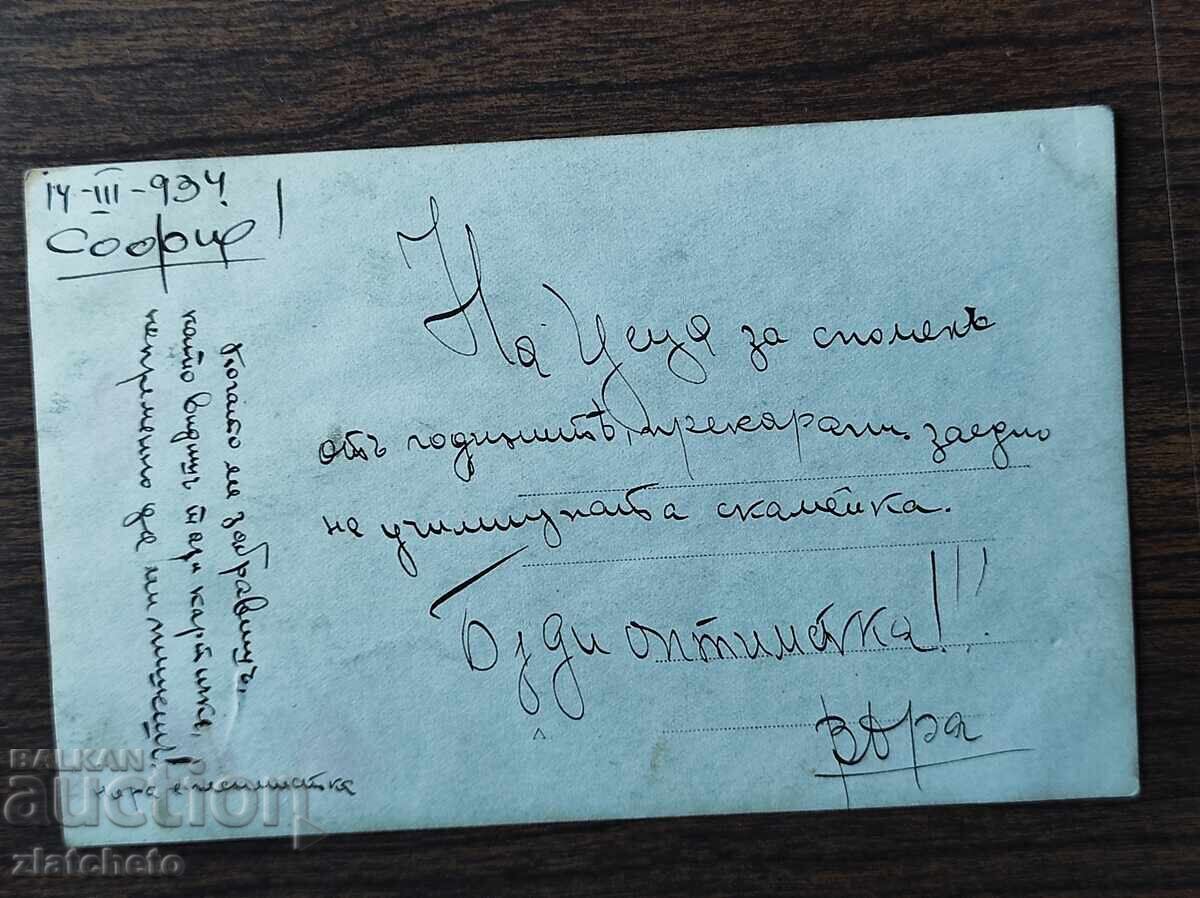 14-III-934
София!
На Цеца за споменъ
отъ годинитѣ, прекарани заедно
на училищната скамейка.
Бѫди оптимистка!!!
Вѣра
Когато ме забравишъ,
като видишъ тази картичка,
непременно да ми пишешъ!
песимистка
BALKAN
auction
zlatcheto